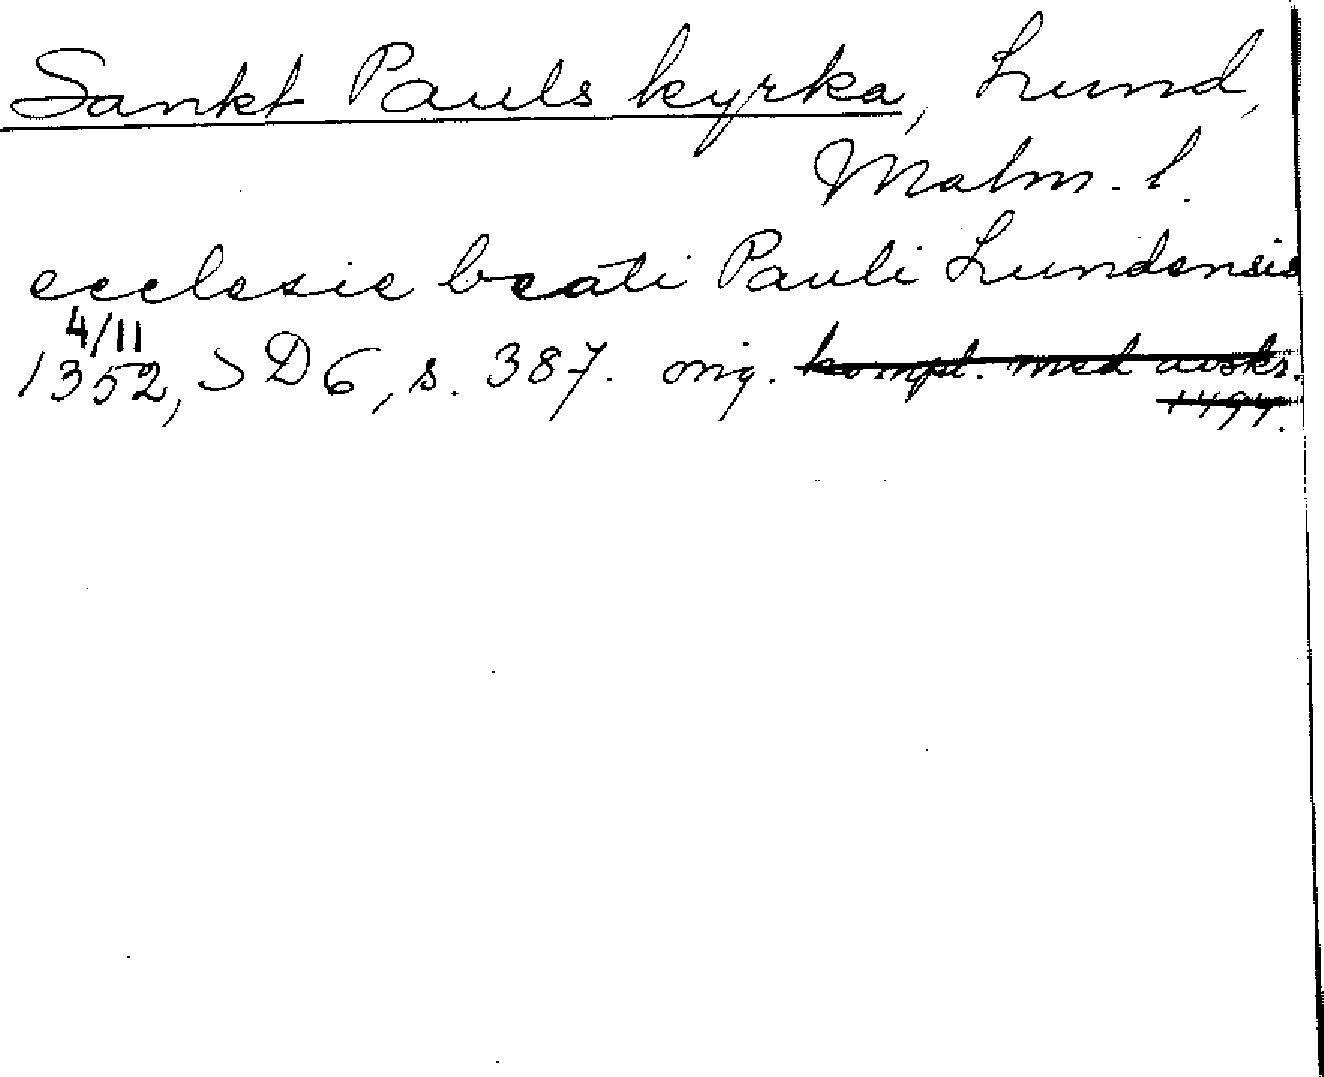 Sankt Pauls kyrka, Lund,
Malm. l.
ecclesie beati Pauli Lundensis
4/11
1352, SD 6, s. 387. orig. kompl. med avskr.
1494.